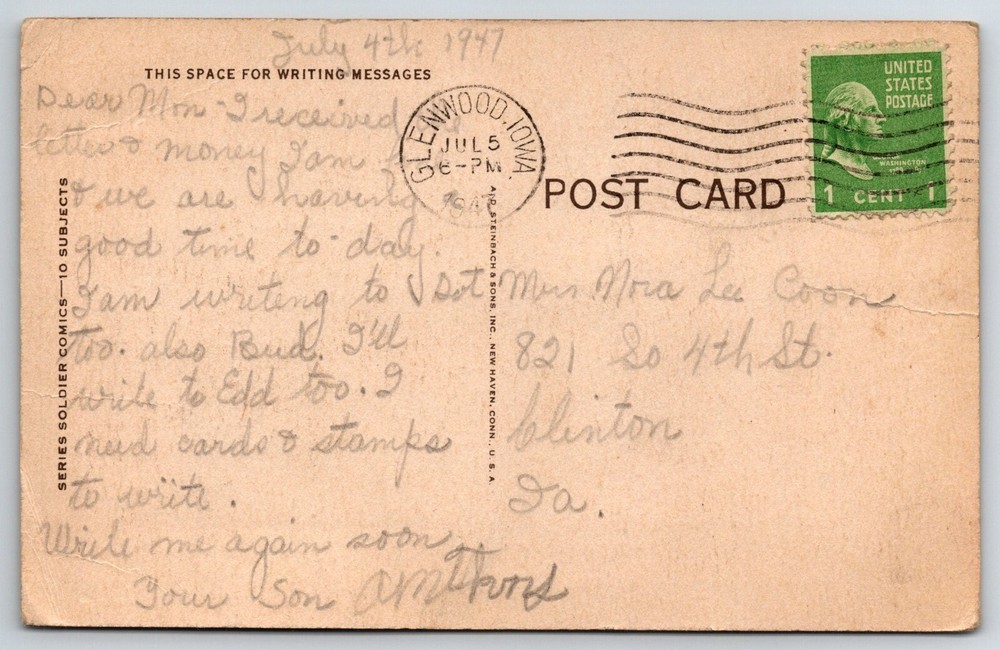 July 4th 1947
THIS SPACE FOR WRITING MESSAGES
Dear Mom - I received
letter & money I am
& we are having a
good time to day.
I am writeng to Dot
too. also Bud. I'll
write to Edd too. I
need cards & stamps
to write.
Write me again soon
Your Son
SERIES SOLDIER COMICS—10 SUBJECTS
A.D. STEINBACH & SONS, INC., NEW HAVEN, CONN., U.S.A
GLENWOOD, IOWA
JUL 5
6-PM
1947
POST CARD
UNITED
STATES
POSTAGE
WASHINGTON
1 CENT 1
Mrs. Nora Lee Coon
821 So 4th St.
Clinton
Ia.